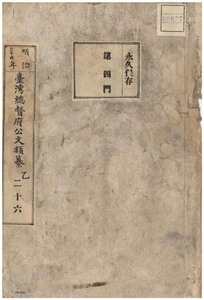 永久保存
第四門
明治
年
臺灣總督府公文類纂 乙
二十六